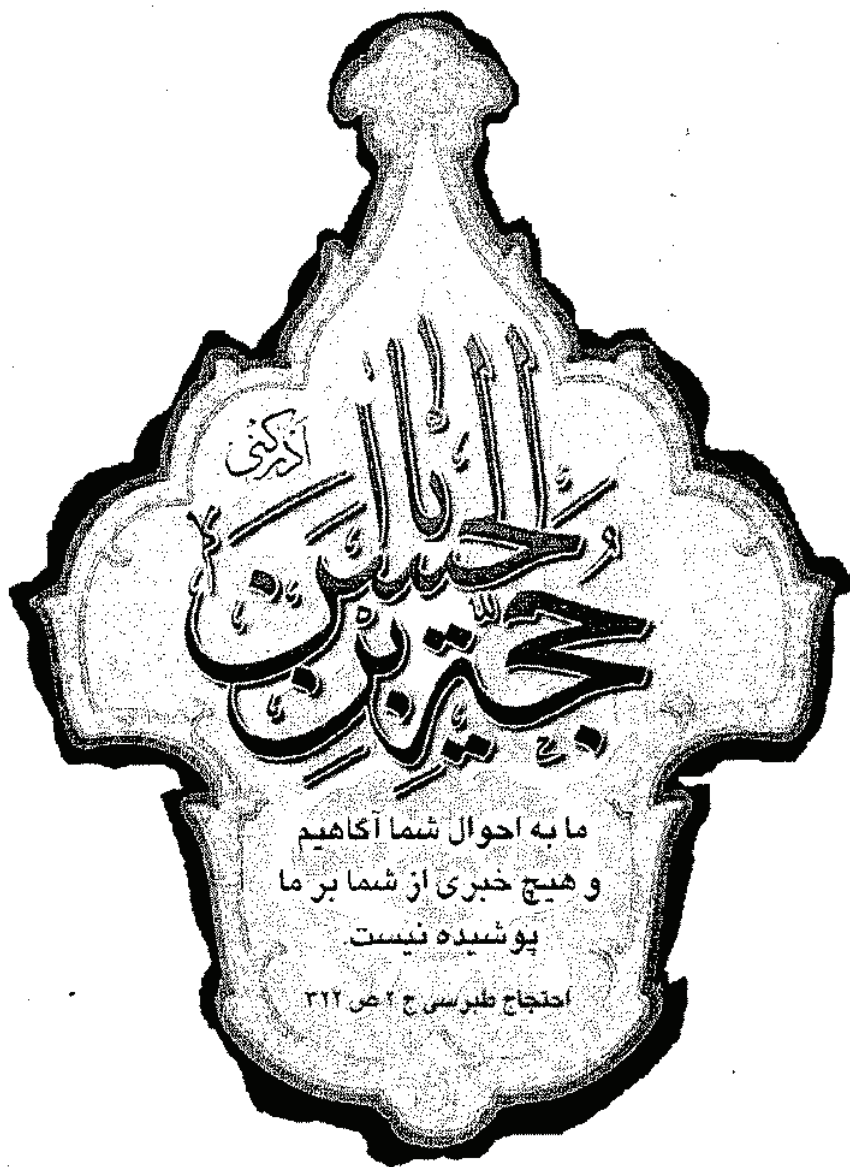 یا
حجة بن
الحسن
ادرکنی
ما به احوال شما آگاهیم
و هیچ خبری از شما بر ما
پوشیده نیست.
احتجاج طبرسی ج ۲ ص ۳۲۲